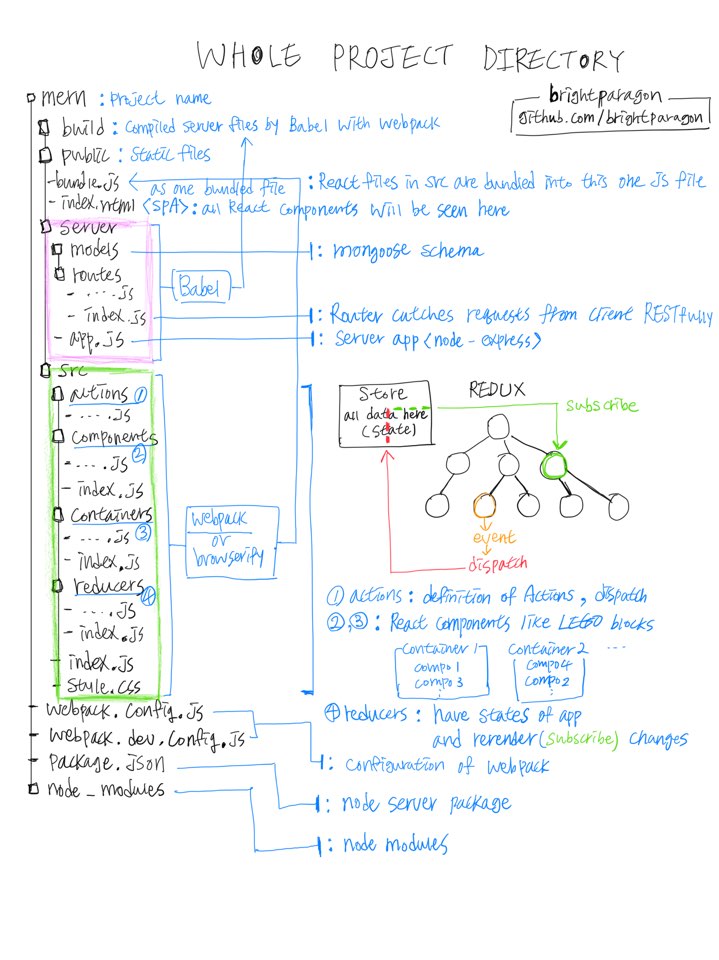 WHOLE PROJECT DIRECTORY
brightparagon
github.com/brightparagon
mern : Project name
build : Compiled server files by Babel with webpack
public : Static files
- bundle.js
as one bundled file
: React files in src are bundled into this one JS file
- index.html <SPA> : all React Components will be seen here
server
models
: mongoose schema
routes
Babel
- ....js
- index.js
: Router catches requests from client RESTfully
- app.js
: Server app <node - express>
src
actions ①
- ....js
Components
②
- ....js
- index.js
Containers
- ....js ③
- index.js
reducers
④
- ....js
- index.js
- index.js
- style.css
webpack
or
browserify
Store
all data here
(state)
REDUX
subscribe
event
dispatch
① actions : definition of Actions, dispatch
②,③ : React components like LEGO blocks
Container 1
compo 1
compo 3
:
Container 2
compo4
compo2
:
...
④ reducers : have states of app
and rerender(subscribe) changes
- webpack.config.js
- webpack.dev.config.js
: configuration of webpack
- package.json
: node server package
node_modules
: node modules